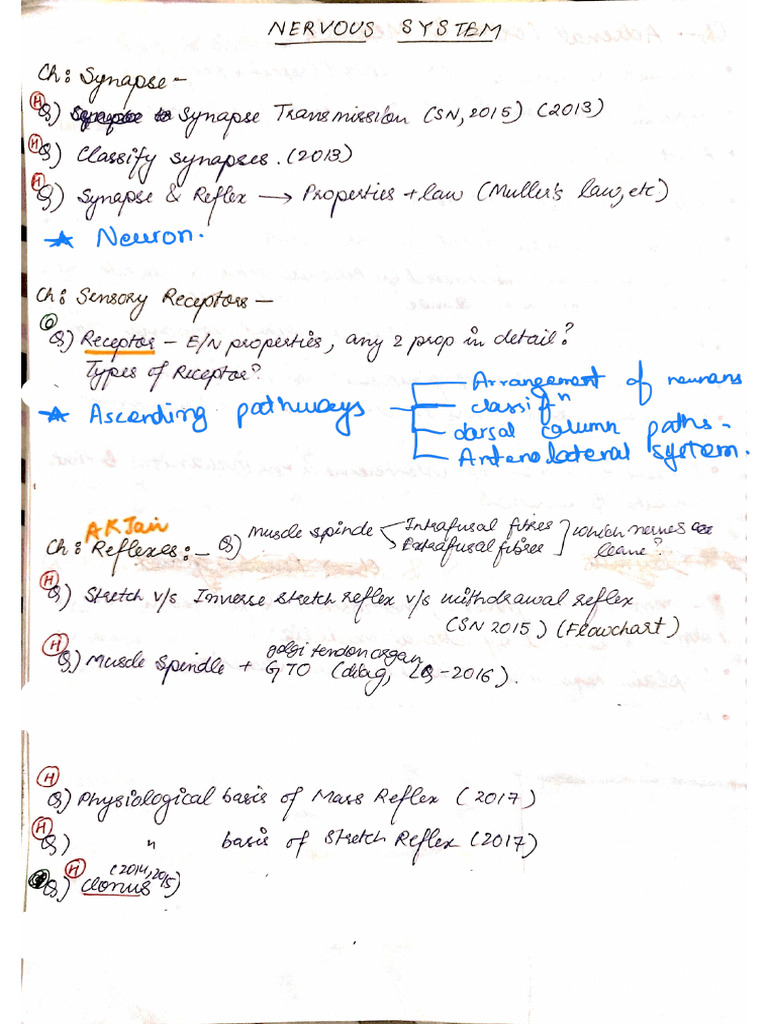 NERVOUS SYSTEM
Ch: Synapse -
(H) Q) Synapse Transmission (SN, 2015) (2013)
(H) Q) Classify synapses. (2013)
(H) Q) Synapse & Reflex → Properties + law (Muller's law, etc)
★ Neuron.
Ch: Sensory Receptors -
Q) Receptor - E/N properties, any 2 prop in detail?
Types of Receptor?
★ Ascending pathways
- Arrangement of neurans
- classifⁿ
- dorsal column paths -
- Anterolateral system.
AK Jain
Ch: Reflexes: - Q) Muscle spinde < Intrafusal fibres
Extrafusal fibres ] which nerves
leave?
(H) Q) Stretch v/s Inverse stretch reflex v/s withdrawal reflex
(SN 2015) (Flowchart)
golgi tendon organ
(H) Q) Muscle Spindle + GTO (diag, LQ - 2016).
(H) Q) Physiological basis of Mass Reflex (2017)
(H) Q) " basis of Stretch Reflex (2017)
(H) (2014, 2015)
Q) Clonus